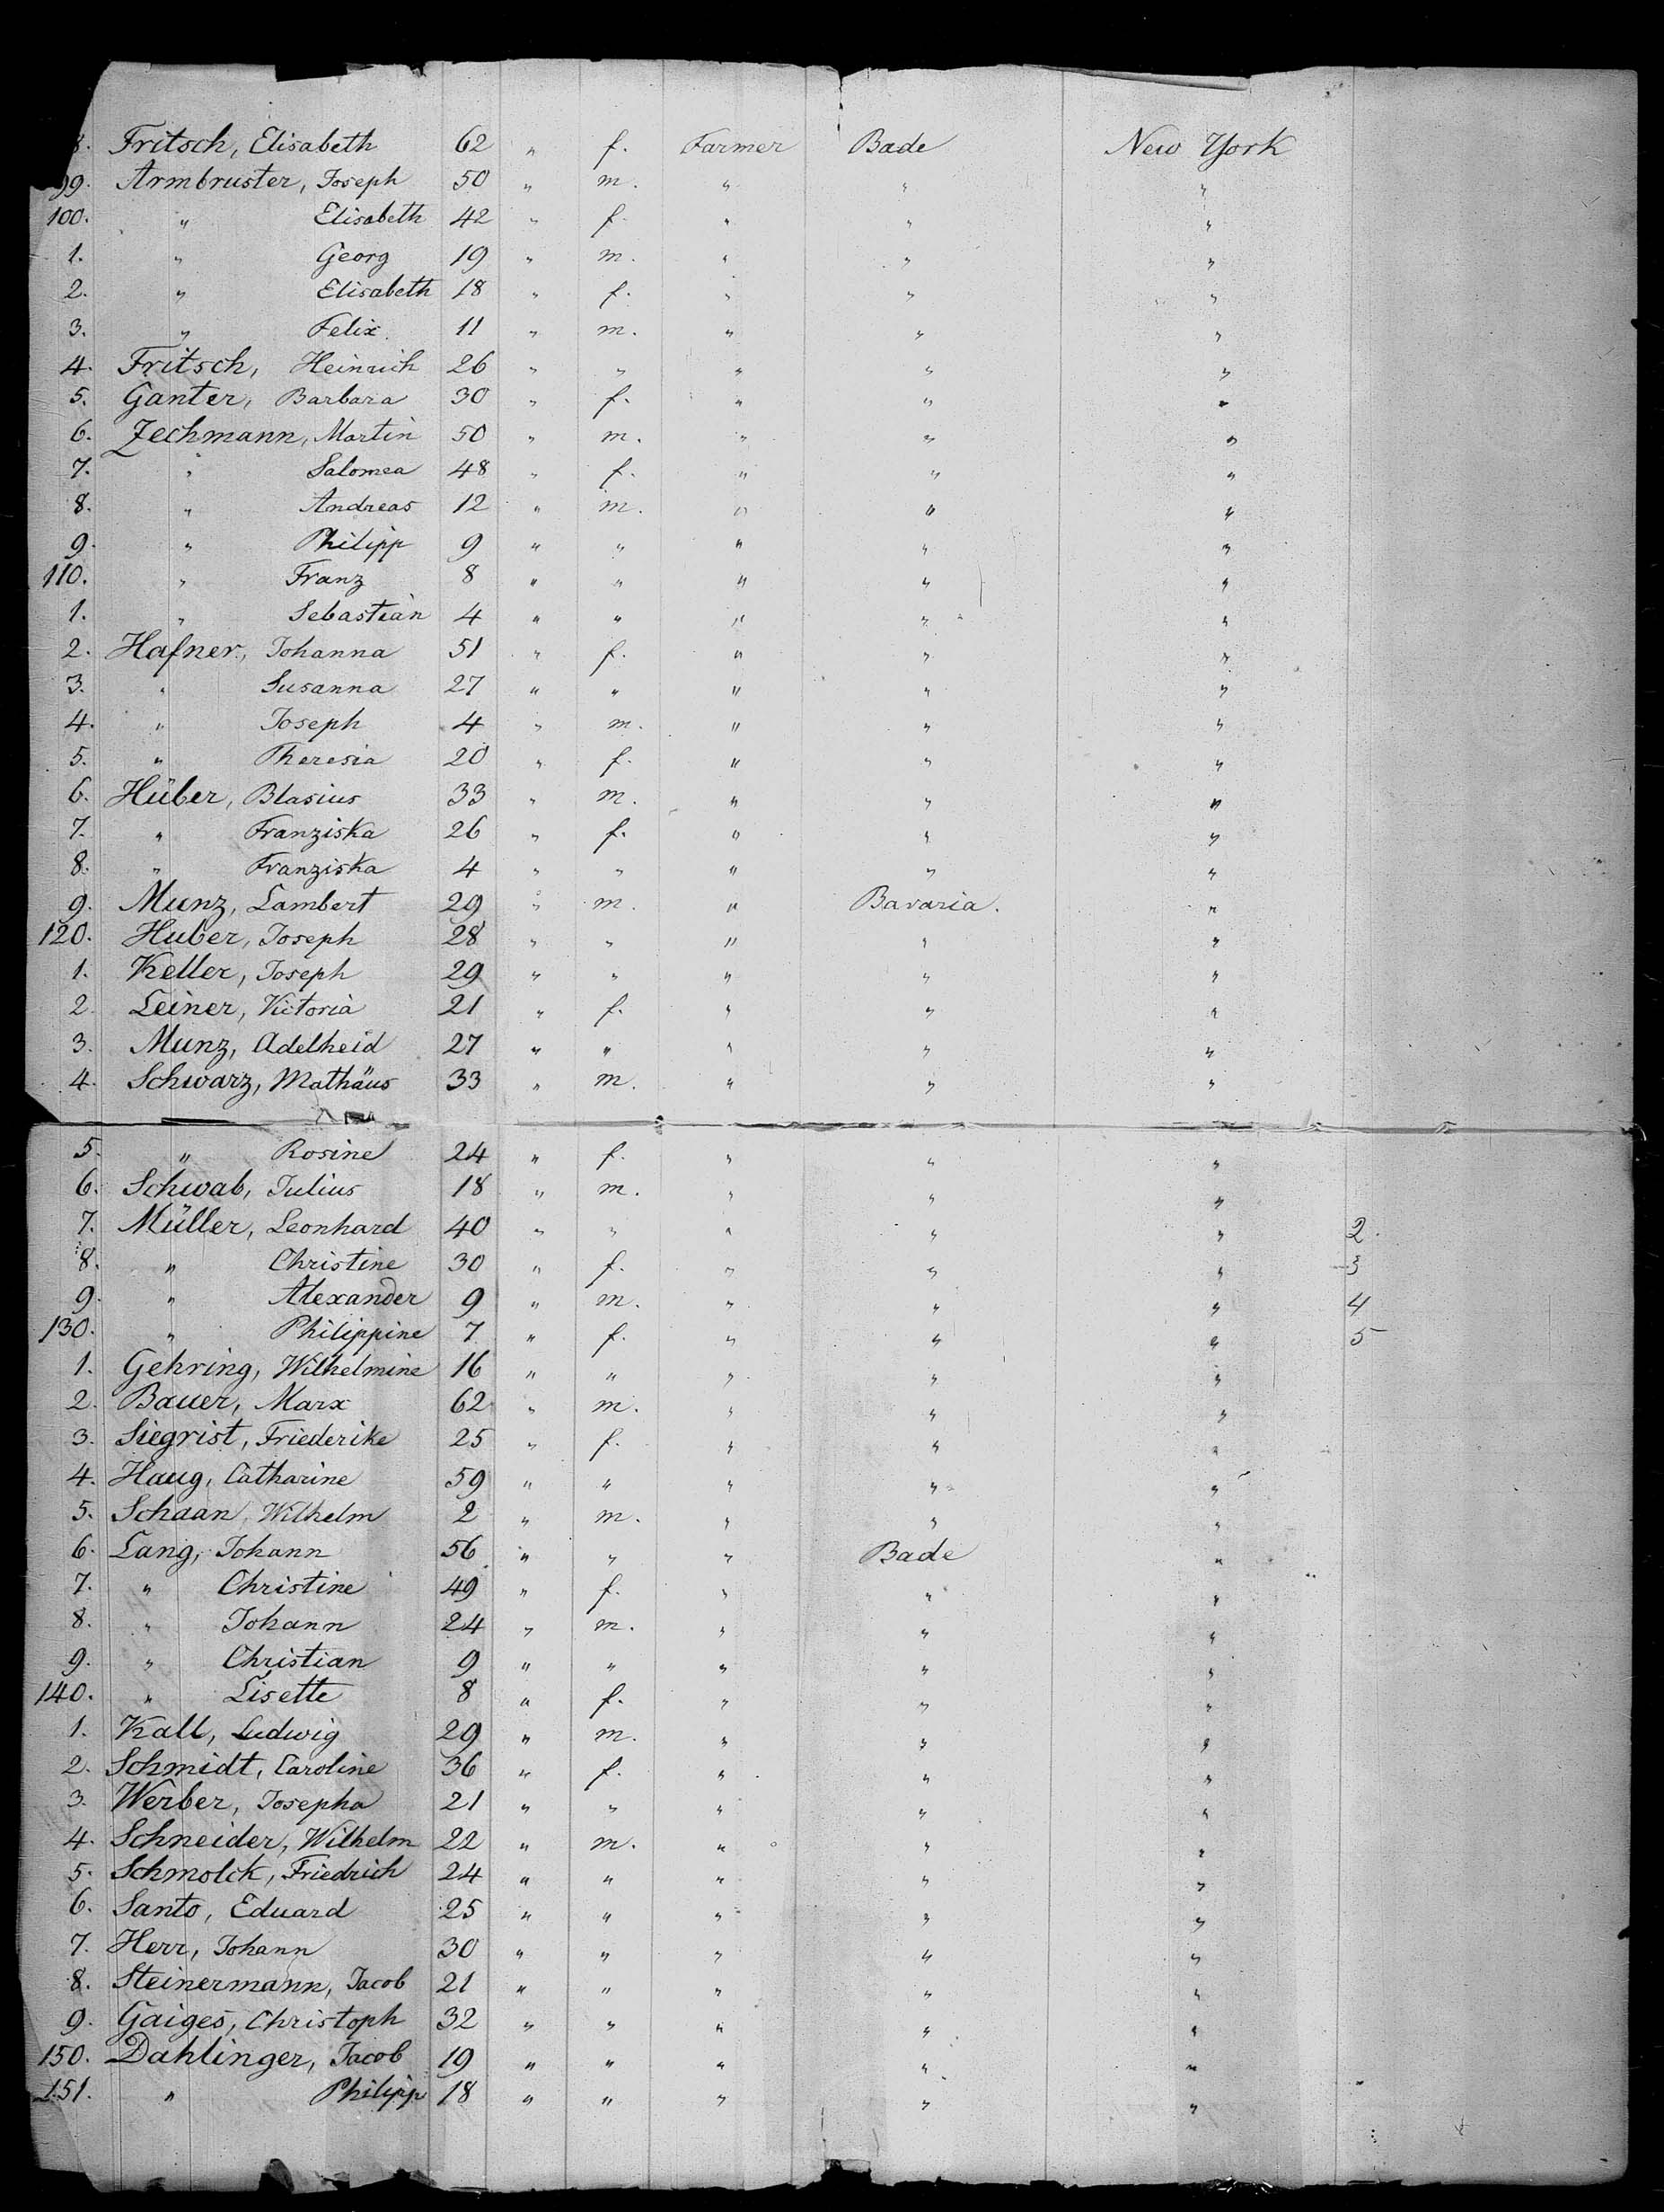 8. Fritsch, Elisabeth 62 " f. Farmer Bade New York
99. Armbruster, Joseph 50 " m. " " "
100. " Elisabeth 42 " f. " " "
1. " Georg 19 " m. " " "
2. " Elisabeth 18 " f. " " "
3. " Felix 11 " m. " " "
4. Fritsch, Heinrich 26 " " " " "
5. Ganter, Barbara 30 " f. " " "
6. Zechmann, Martin 50 " m. " " "
7. " Salomea 48 " f. " " "
8. " Andreas 12 " m. " " "
9. " Philipp 9 " " " " "
110. " Franz 8 " " " " "
1. " Sebastian 4 " " " " "
2. Hafner, Johanna 51 " f. " " "
3. " Susanna 27 " " " " "
4. " Joseph 4 " m. " " "
5. " Theresia 20 " f. " " "
6. Hüber, Blasius 33 " m. " " "
7. " Franziska 26 " f. " " "
8. " Franziska 4 " " " " "
9. Munz, Lambert 29 " m. " Bavaria. "
120. Huber, Joseph 28 " " " " "
1. Keller, Joseph 29 " " " " "
2. Leiner, Victoria 21 " f. " " "
3. Munz, Adelheid 27 " " " " "
4. Schwarz, Mathäus 33 " m. " " "
5. " Rosine 24 " f. " " "
6. Schwab, Julius 18 " m. " " "
7. Müller, Leonhard 40 " " " " " 2.
8. " Christine 30 " f. " " " 3
9. " Alexander 9 " m. " " " 4
130. " Philippine 7 " f. " " " 5
1. Gehring, Wilhelmine 16 " " " " "
2. Bauer, Marx 62 " m. " " "
3. Siegrist, Friederike 25 " f. " " "
4. Haug, Catharine 59 " " " " "
5. Schaan, Wilhelm 2 " m. " " "
6. Lang, Johann 56 " " " Bade "
7. " Christine 49 " f. " " "
8. " Johann 24 " m. " " "
9. " Christian 9 " " " " "
140. " Lisette 8 " f. " " "
1. Kall, Ludwig 29 " m. " " "
2. Schmidt, Caroline 36 " f. " " "
3. Werber, Josepha 21 " " " " "
4. Schneider, Wilhelm 22 " m. " " "
5. Schmolck, Friedrich 24 " " " " "
6. Santo, Eduard 25 " " " " "
7. Herr, Johann 30 " " " " "
8. Steinermann, Jacob 21 " " " " "
9. Gaiges, Christoph 32 " " " " "
150. Dahlinger, Jacob 19 " " " " "
151. " Philipp 18 " " " " "